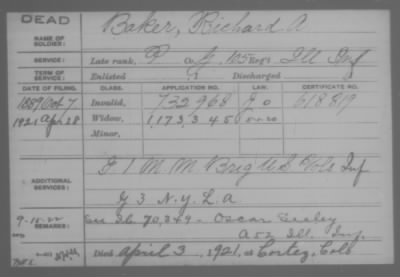 DEAD
NAME OF SOLDIER: Baker, Richard A
SERVICE: Late rank, P Co. G, 105 Reg't Ill Inf
TERM OF SERVICE: Enlisted Discharged
DATE OF FILING. CLASS. APPLICATION NO. LAW. CERTIFICATE NO.
1889 Oct 7 Invalid, 732968 618819
1921 Apr 28 Widow, 1173345
Minor,
ADDITIONAL SERVICES: F 1 M. M. Brig U.S. Vols Inf
G 3 N.Y. L.A
9-15-22 REMARKS: See 70,349 - Oscar
A 52 Ill. Inf.
Died April 3, 1921, at Cortez, Colo